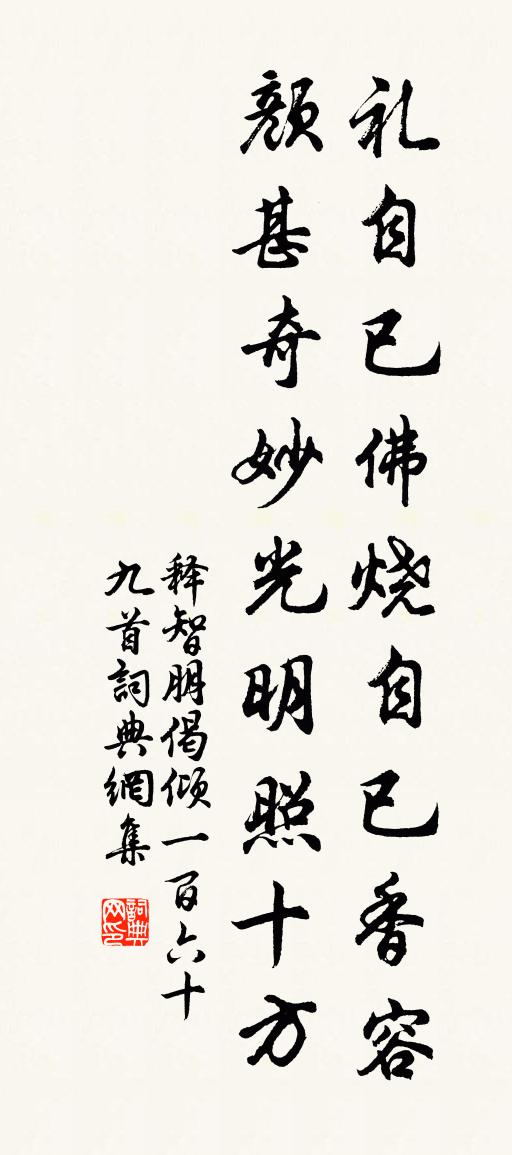 礼自已佛烧自已香容
颜甚奇妙光明照十方
释智朋偈倾一百六十
九首詞典網集
詞典
网印